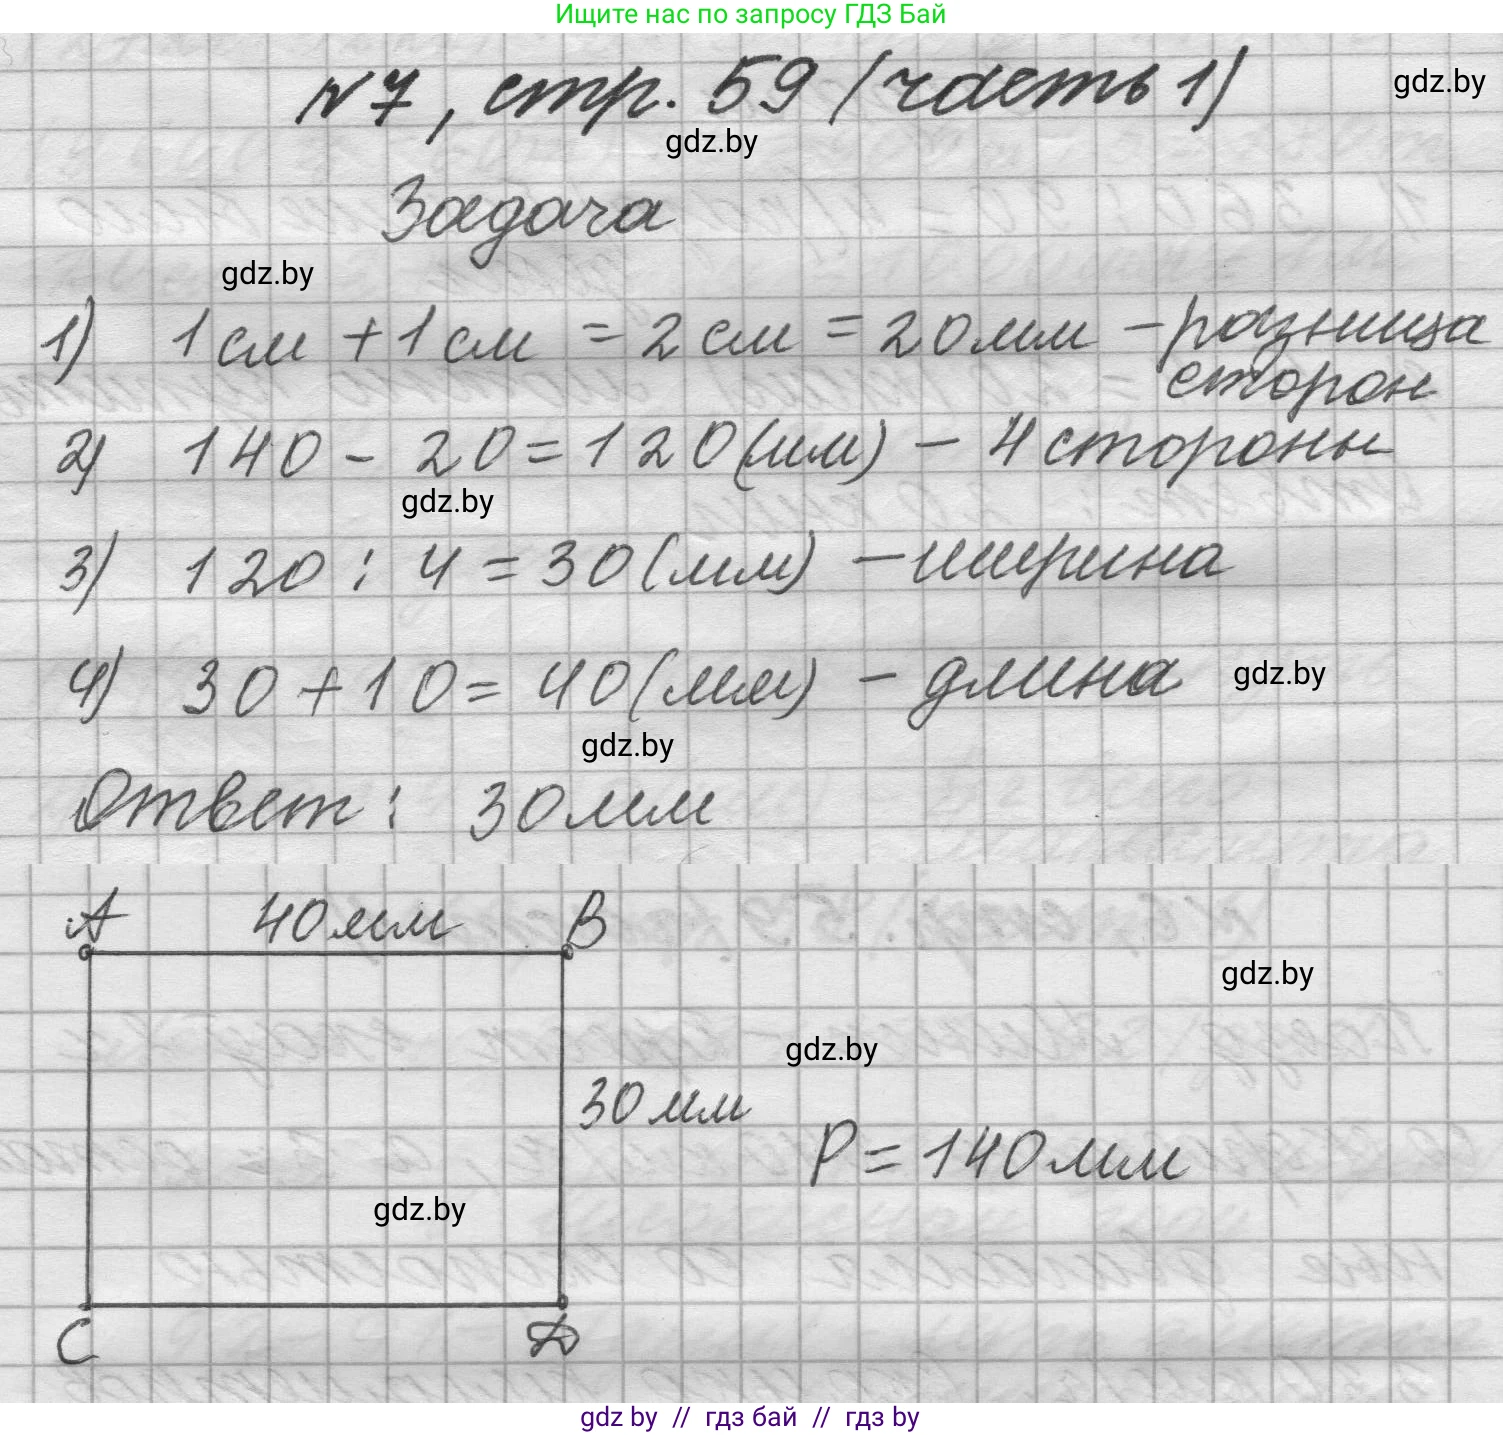 Ищите нас по запросу ГДЗ Бай
№7, стр. 59 (часть 1)
gdz.by
gdz.by
Задача
gdz.by
1) 1 см + 1 см = 2 см = 20 мм - разница
сторон
2) 140 - 20 = 120 (мм) - 4 стороны
gdz.by
3) 120 : 4 = 30 (мм) - ширина
4) 30 + 10 = 40 (мм) - длина
gdz.by
gdz.by
Ответ: 30 мм
A 40 мм B
gdz.by
gdz.by
30 мм
P = 140 мм
gdz.by
C D
gdz by // гдз бай // гдз by